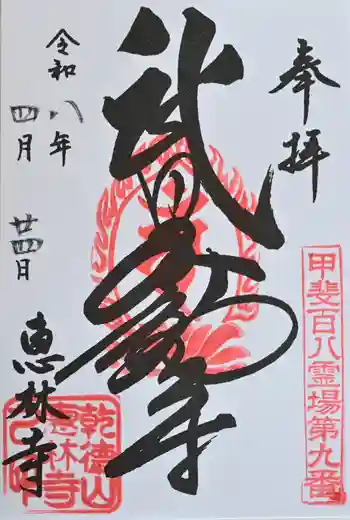 奉拝
甲斐百八霊場第九番
武田不動尊
令和八年
四月 廿四日
恵林寺
乾徳山
惠林寺